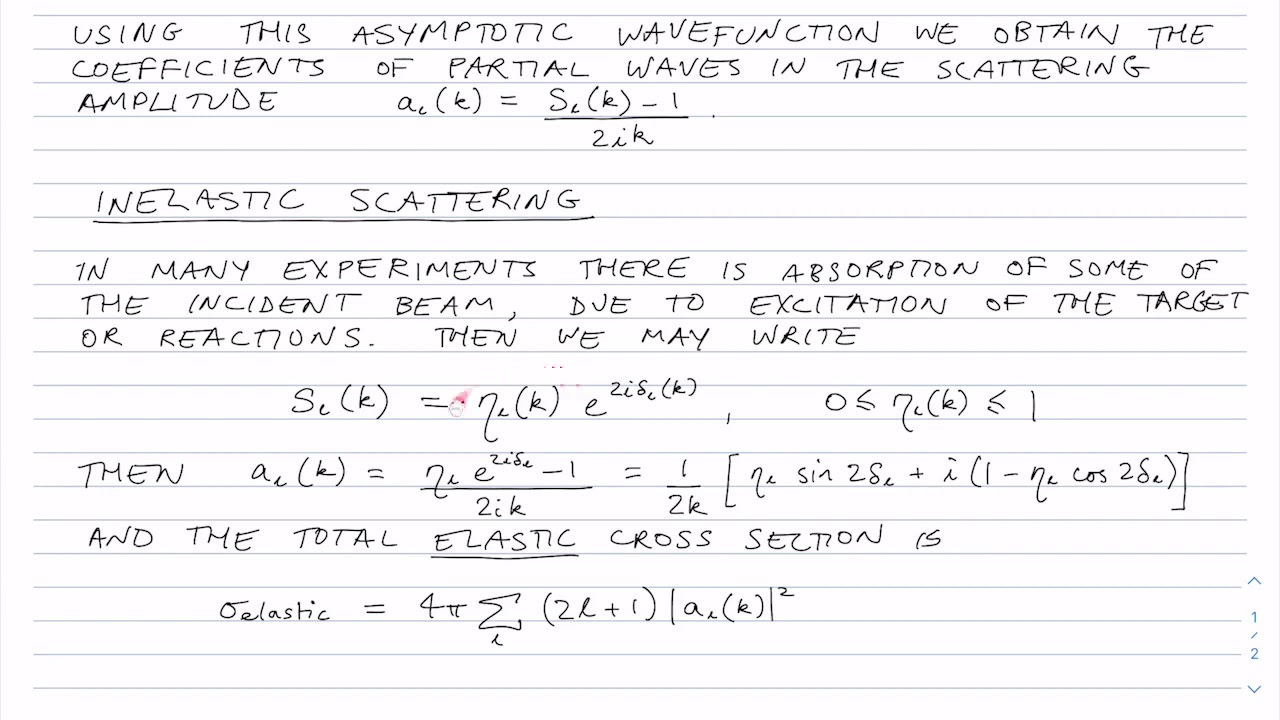 USING THIS ASYMPTOTIC WAVEFUNCTION WE OBTAIN THE
COEFFICIENTS OF PARTIAL WAVES IN THE SCATTERING
AMPLITUDE a_l(k) = (S_l(k) - 1)/(2ik) .
INELASTIC SCATTERING
IN MANY EXPERIMENTS THERE IS ABSORPTION OF SOME OF
THE INCIDENT BEAM, DUE TO EXCITATION OF THE TARGET
OR REACTIONS. THEN WE MAY WRITE
S_l(k) = η_l(k) e^{2iδ_l(k)}, 0 ≤ η_l(k) ≤ 1
THEN a_l(k) = (η_l e^{2iδ_l} - 1)/(2ik) = 1/(2k) [η_l sin 2δ_l + i(1 - η_l cos 2δ_l)]
AND THE TOTAL ELASTIC CROSS SECTION IS
σ_elastic = 4π Σ_l (2l+1) |a_l(k)|²
1
/
2